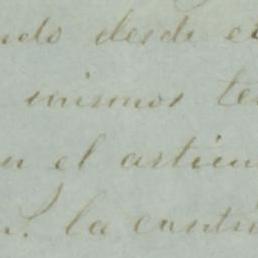 ndo desde e
mismos te
n el articu
n. la canti